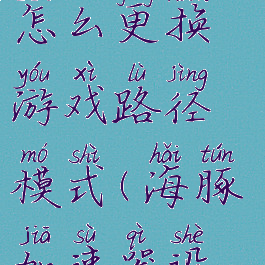 怎么更换
yóu xì lù jìng
游戏路径
mó shì hǎi tún
模式(海豚
jiā sù qì shè
加速器设